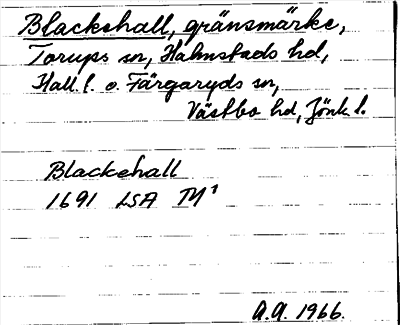 Blackehall, gränsmärke,
Torups sn, Halmstads hd,
Hall. l. o. Färgaryds sn,
Västbo hd, Jönk. l.
Blackehall
1691 LSA TY¹
A.A. 1966.